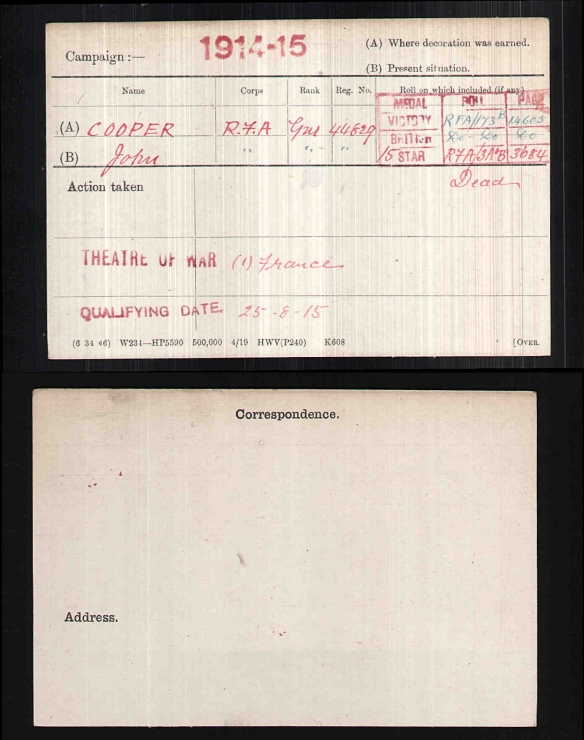 Campaign :— 1914-15 (A) Where decoration was earned.
(B) Present situation.
Name Corps Rank Reg. No. Roll on which included (if any)
MEDAL ROLL PAGE
(A) COOPER R.F.A Gnr 44829 VICTORY RFA/173B 14605
(B) John " " " BRITISH do do
15 STAR RFA/3A"B 3684
Action taken Dead
THEATRE OF WAR (1) France
QUALIFYING DATE 25-8-15
(6 34 46) W234—HP5590 500,000 4/19 HWV(P240) K608 [OVER.
Correspondence.
Address.